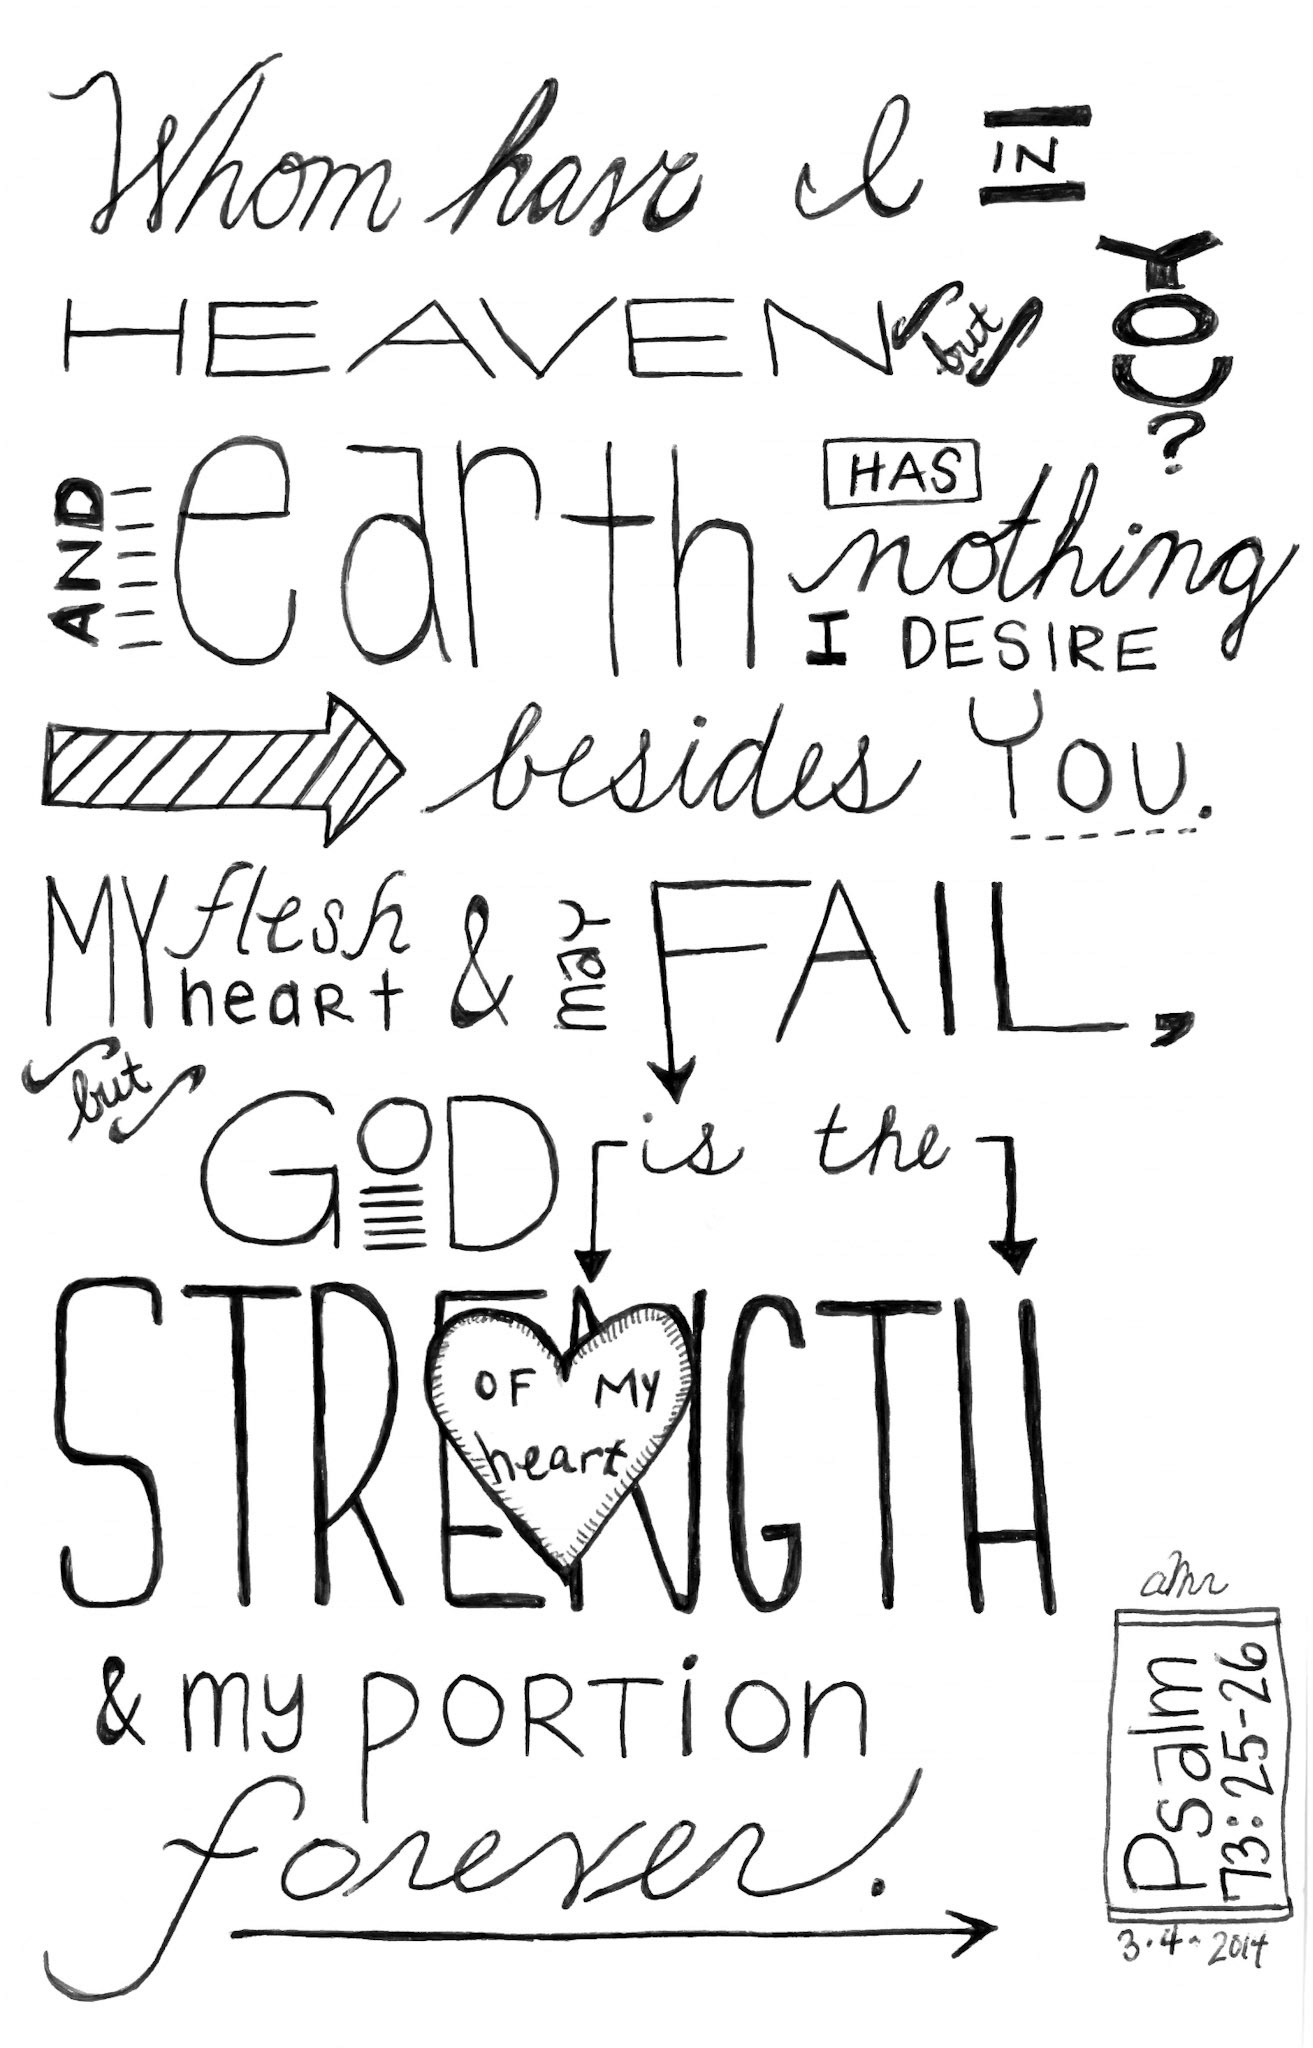 Whom have I IN
HEAVEN but YOU?
AND earth HAS nothing
I DESIRE
besides YOU.
MY flesh & heart may FAIL,
but GOD is the
STRENGTH
OF MY
heart
& my PORTION
forever.
amr
Psalm
73:25-26
3.4.2014